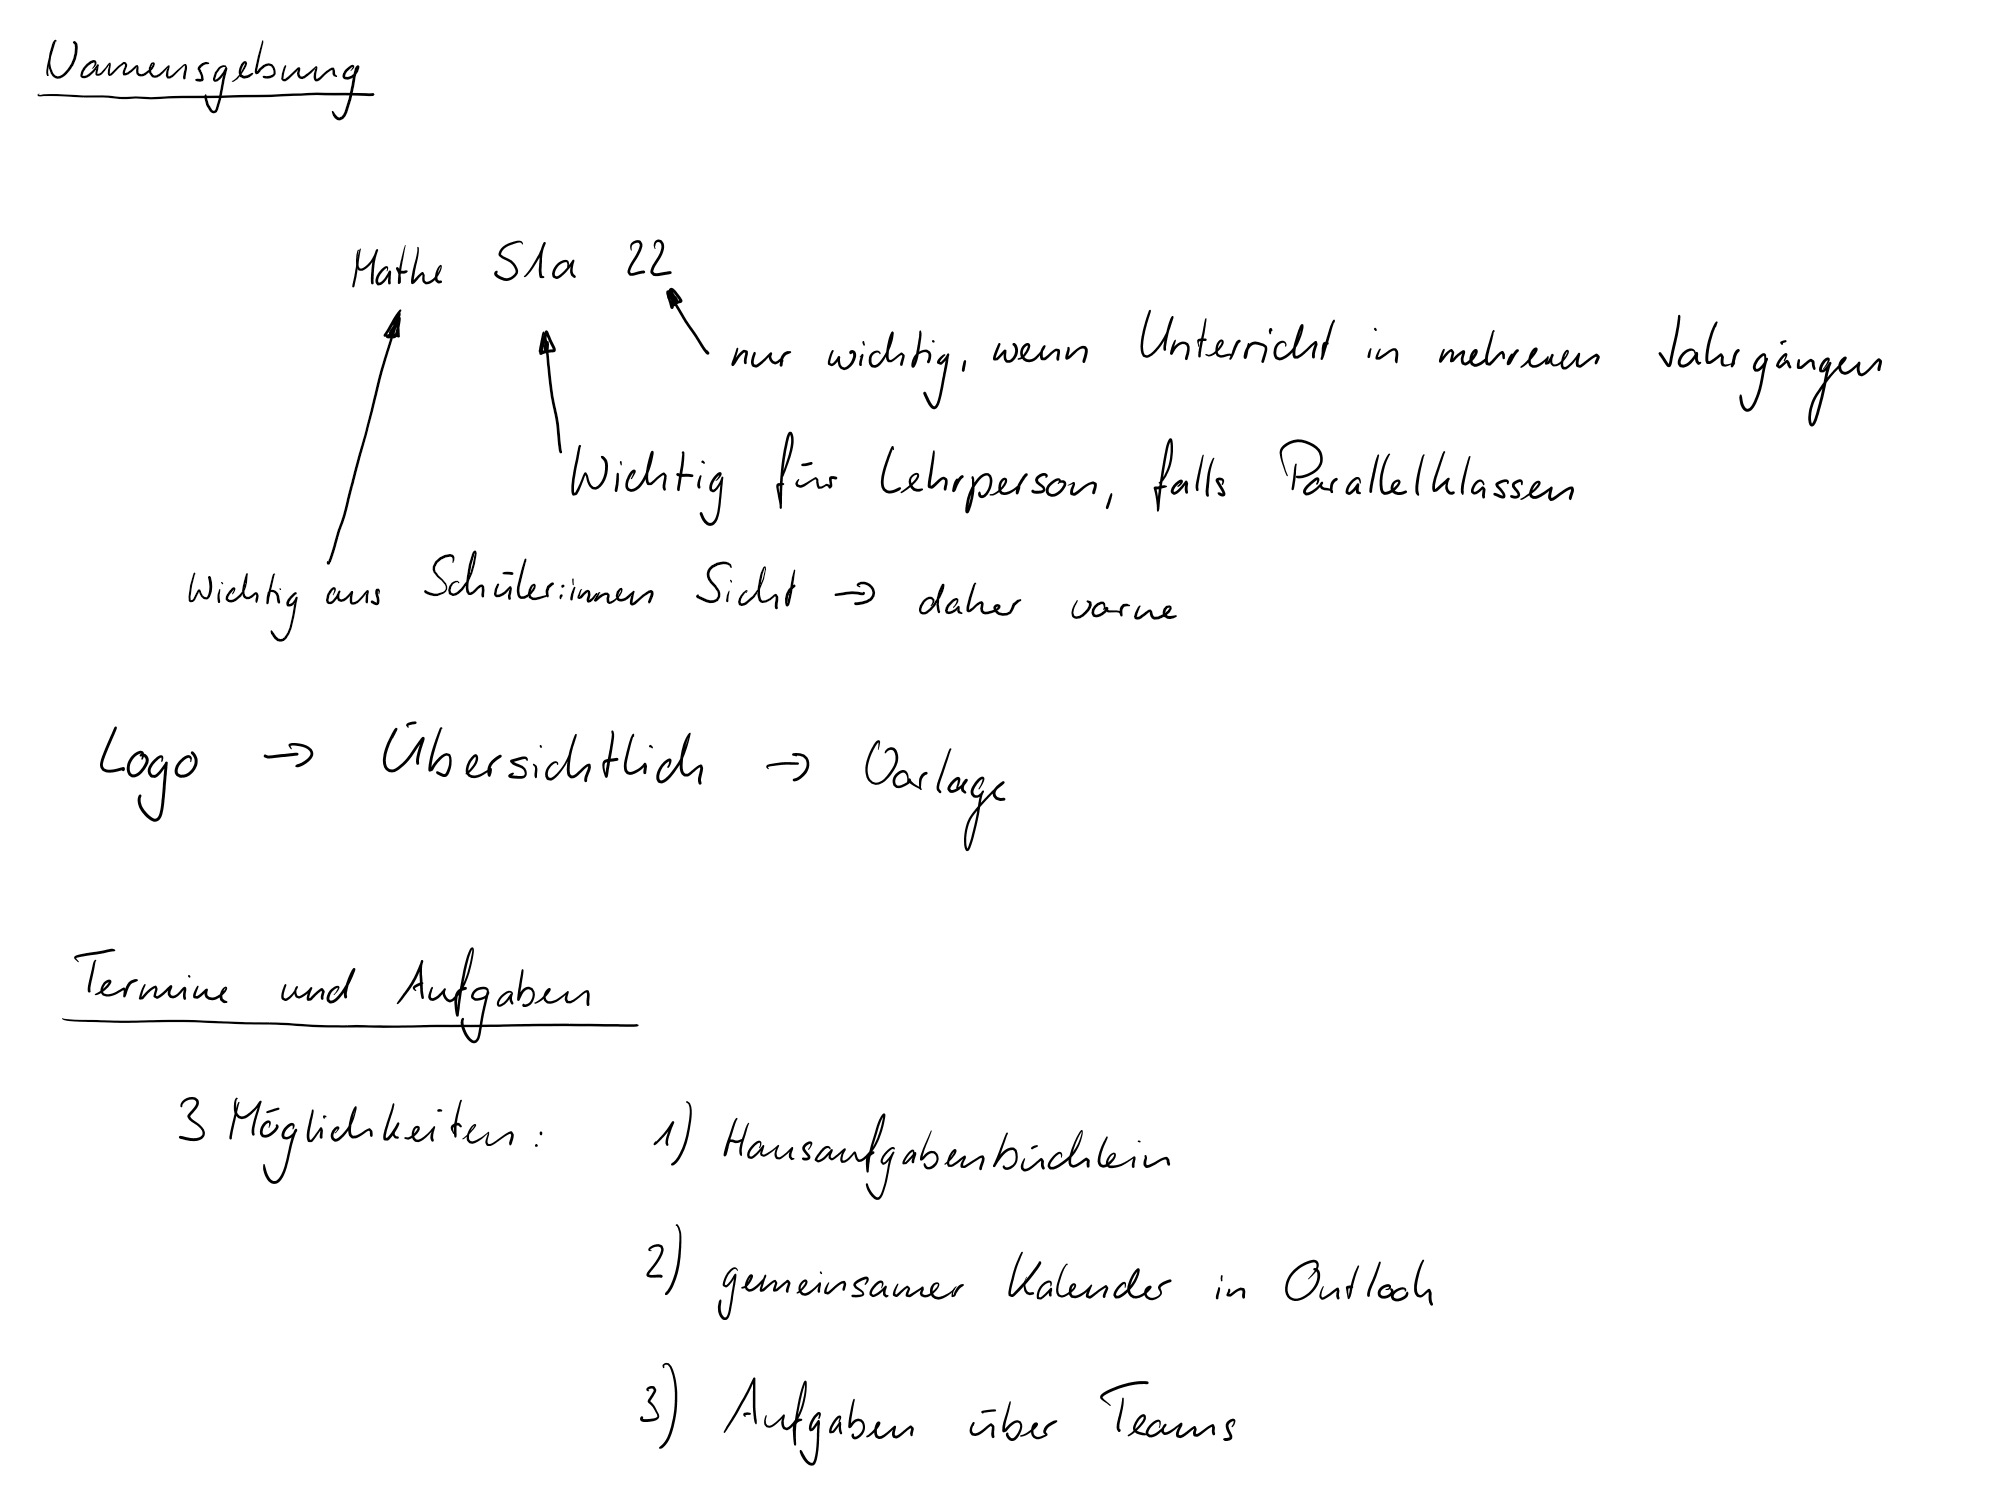 Namensgebung
Mathe S1a 22
nur wichtig, wenn Unterricht in mehreren Jahrgängen
Wichtig für Lehrperson, falls Parallelklassen
Wichtig aus Schüler:innen Sicht → daher vorne
Logo → Übersichtlich → Vorlage
Termine und Aufgaben
3 Möglichkeiten: 1) Hausaufgabenbüchlein
2) gemeinsamer Kalender in Outlook
3) Aufgaben über Teams